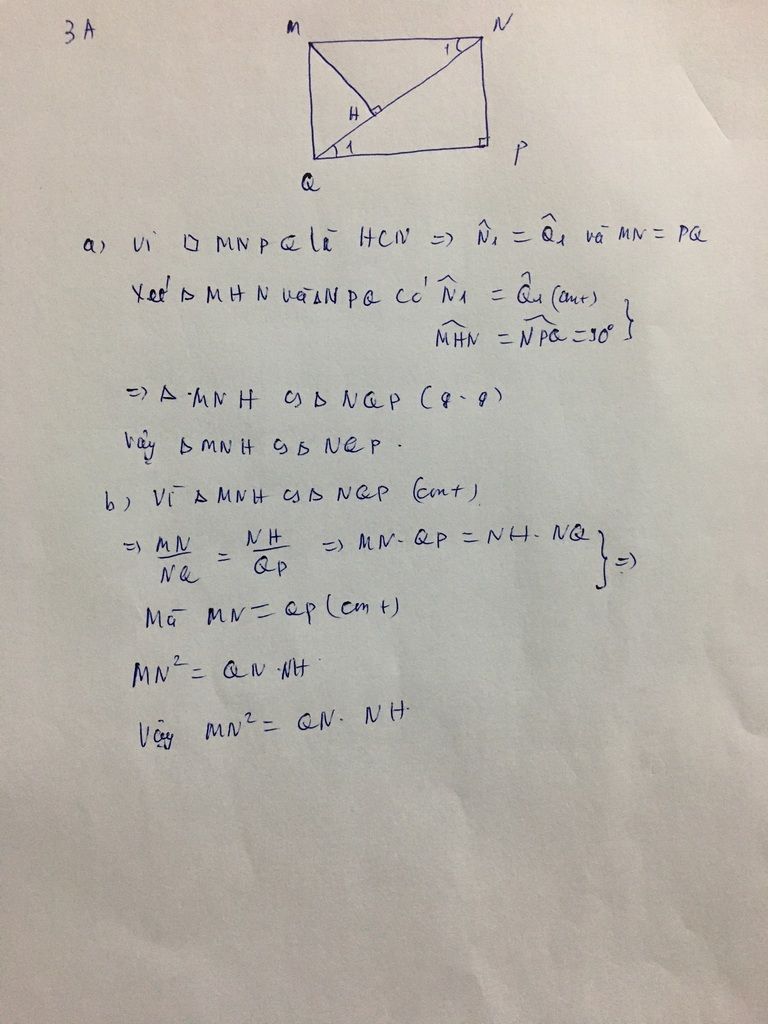 3A
M
N
1
H
1
Q
P
a) Vì □ MNPQ là HCN => N̂₁ = Q̂₁ và MN = PQ
Xét Δ MHN và Δ NPQ có N̂₁ = Q̂₁ (cmt)
M͡HN = N͡PQ = 90° }
=> Δ MNH ᔕ Δ NQP (g.g)
Vậy Δ MNH ᔕ Δ NQP.
b) Vì Δ MNH ᔕ Δ NQP (cmt)
=> MN/NQ = NH/QP => MN. QP = NH. NQ } =>
Mà MN = QP (cmt)
MN² = QN.NH
Vậy MN² = QN. NH.